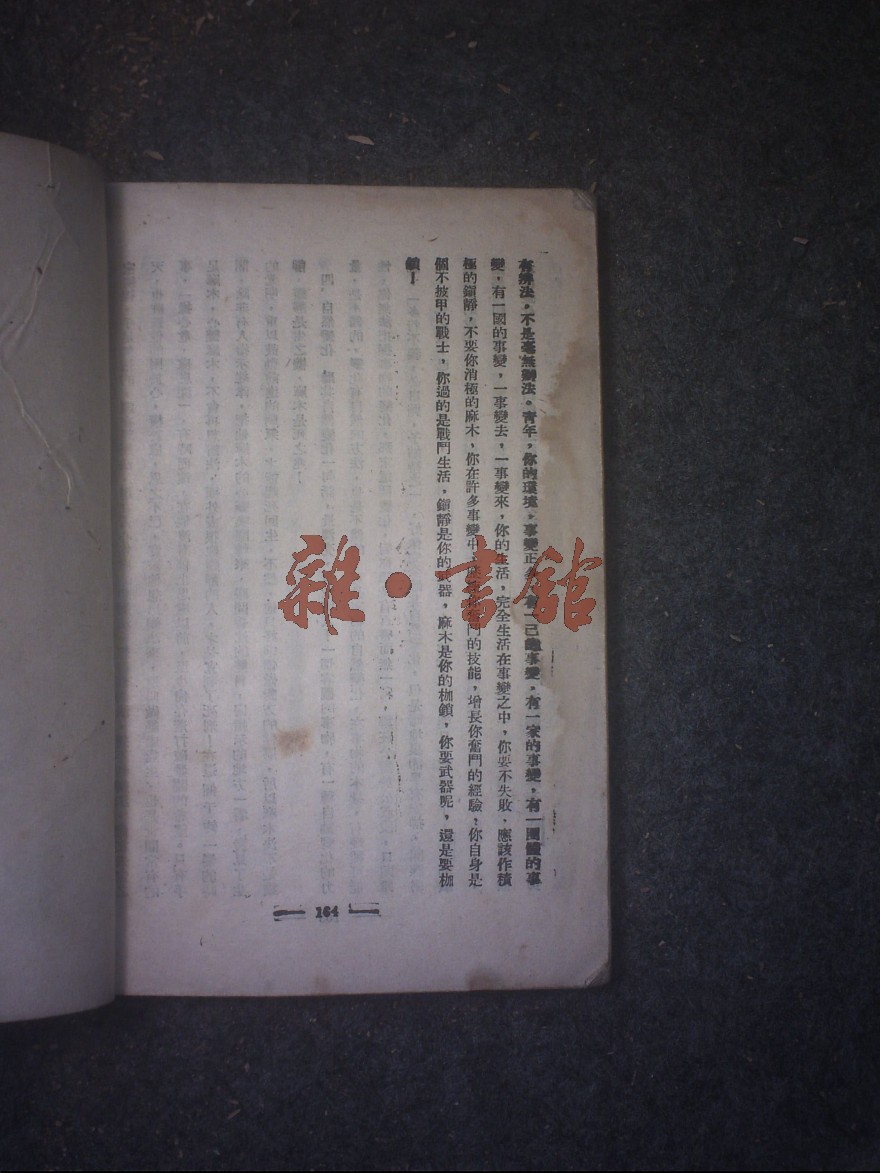 有辦法，不是毫無辦法。青年，你的環境，事變正多，有一己的事變，有一家的事變，有一團體的事
變，有一國的事變，一事變去，一事變來，你的生活，完全生活在事變之中，你要不失敗，應該作積
極的鎮靜，不要你消極的麻木，你在許多事變中，奮鬥的技能，增長你奮鬥的經驗，你自身是
個不披甲的戰士，你過的是戰鬥生活，鎮靜是你的武器，麻木是你的枷鎖，你要武器呢，還是要枷
鎖！
164
雜·書館